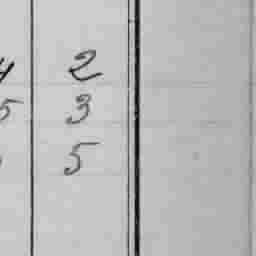 4 2
5 3
5